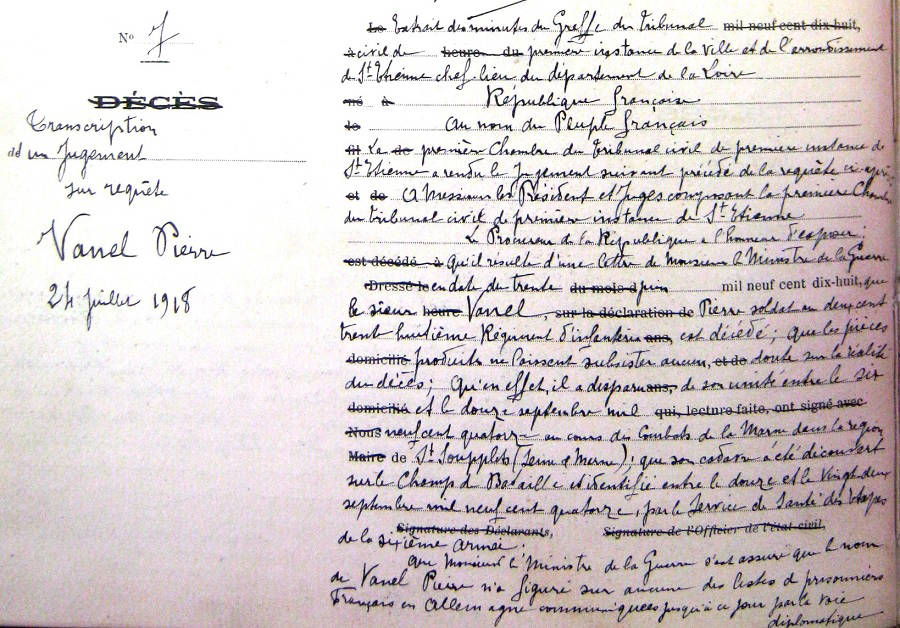 N° 7
DÉCÈS
Transcription
d'un Jugement
sur requête
Vanel Pierre
24 Juillet 1918
Le Extrait des minutes du Greffe du Tribunal mil neuf cent dix-huit,
à civil de heure du première instance de la Ville et de l'arrondissement
de St Etienne chef-lieu du département de la Loire
né à République Française
le au nom du Peuple Français
fil La de première Chambre du Tribunal civil de première instance de
St Etienne a rendu le Jugement suivant précédé de la requête ci-après
et de A Messieurs les Président et Juges composant la première Chambre
du Tribunal civil de première instance de St Etienne
Le Procureur de la République a l'honneur d'exposer :
est décédé à Qu'il résulte d'une lettre de Monsieur le Ministre de la Guerre
Dressé le en date du trente du mois d juin mil neuf cent dix-huit, que
le sieur heure Vanel, sur la déclaration de Pierre soldat au deux cent
trente huitième Régiment d'infanterie ans, est décédé ; que les pièces
domicilié produites ne laissent subsister aucun, et de doute sur la réalité
du décès ; Qu'en effet, il a disparu ans, de son unité entre le six
domicilié et le douze septembre mil qui, lecture faite, ont signé avec
Nous neuf cent quatorze au cours des Combats de la Marne dans la région
Maire de St Soupplets (Seine & Marne) ; que son cadavre a été découvert
sur le Champ de Bataille et identifié entre le douze et le vingt-deux
septembre mil neuf cent quatorze, par le Service de Santé des Etapes
Signature des Déclarants, Signature de l'Officier de l'état civil,
de la sixième Armée ;
Que Monsieur le Ministre de la Guerre s'est assuré que le nom
de Vanel Pierre n'a figuré sur aucune des listes de prisonniers
Français en Allemagne communiquées jusqu'à ce jour par la voie
diplomatique